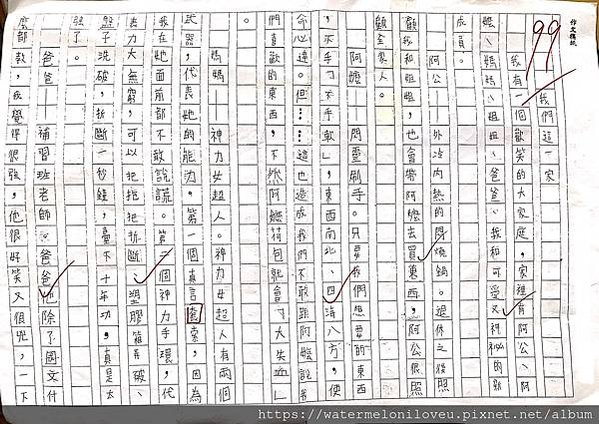 作文稿紙
99
我們這一家
我有一個歡笑的大家庭，家裡有阿公、阿
嬤、媽媽、姐姐、爸爸、我和可愛又神祕的新
成員。
阿公—外冷內熱的悶燒鍋。退休之後
顧我和姐姐，也會帶阿嬤去買東西，阿公很照
顧全家人。
阿嬤—閃靈刷手。只要我們想要的東西
，不手刀不手軟」，東西南北、四海八方，使
命必達。但……這也造成我們不敢跟阿嬤說
們喜歡的東西，不然阿嬤荷包就會「大失血」
。
媽媽—神力女超人。神力女超人有兩個
武器，代表她的能力。第一個真言套索，因為
我在她面前都不敢說謊。第二個神力手環，代
表力大無窮，可以把折斷、塑膠箱弄破、
盤子洗破，折斷一秒鐘，臺下十年功，真是太
強了。
爸爸—補習班老師。爸爸他除了國文
都款，我覺得很強，他很好笑又很兇，一下
https://watermeloniloveu.pixnet.net/album